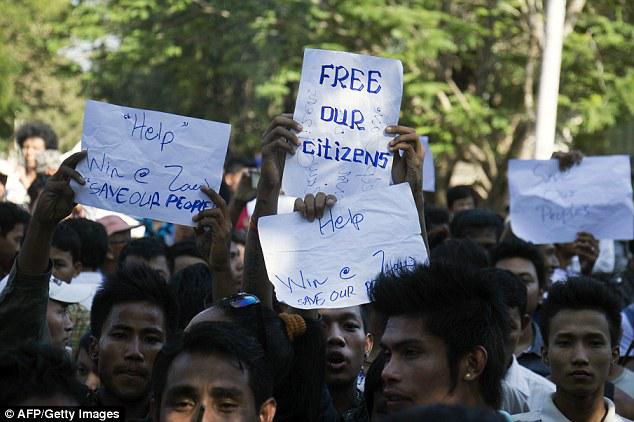 "Help"
Win @ Zaw
"SAVE OUR PEOPLE"
FREE
OUR
CitizENS
Help
Win @ Zaw
SAVE OUR
Peoples
© AFP/Getty Images